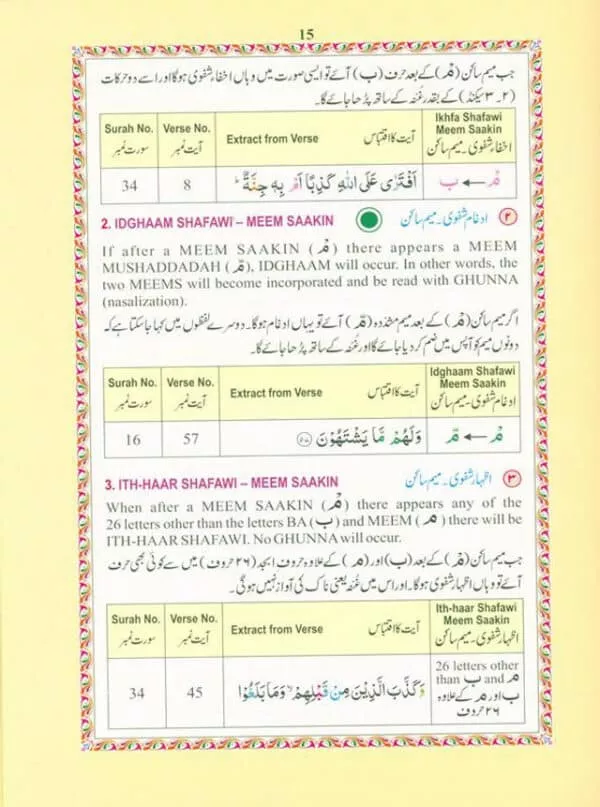 15
جب میم ساکن (مْ) کے بعد حرف (ب) آئے تو ایسی صورت میں وہاں اخفاء شفوی ہوگا اور اسے دو حرکات
(۲-۳ سیکنڈ) کے بقدر غُنّہ کے ساتھ پڑھا جائے گا۔
Surah No. Verse No. Extract from Verse آیت کا اقتباس Ikhfa Shafawi
سورت نمبر آیت نمبر Meem Saakin
اخفاء شفوی۔ میم ساکن
34 8 اَفْتَرٰى عَلَى اللّٰهِ كَذِبًا اَمْ بِهٖ جِنَّةٌ ؕ مْ ← ب
2. IDGHAAM SHAFAWI – MEEM SAAKIN ادغام شفوی۔ میم ساکن ۲
If after a MEEM SAAKIN (مْ) there appears a MEEM
MUSHADDADAH (مّ), IDGHAAM will occur. In other words, the
two MEEMS will become incorporated and be read with GHUNNA
(nasalization).
اگر میم ساکن (مْ) کے بعد میم مشدّدہ (مّ) آئے تو یہاں ادغام ہوگا۔ دوسرے لفظوں میں کہا جا سکتا ہے کہ
دونوں میم کو آپس میں ضم کر دیا جائے گا اور غُنّہ کے ساتھ پڑھا جائے گا۔
Surah No. Verse No. Extract from Verse آیت کا اقتباس Idghaam Shafawi
سورت نمبر آیت نمبر Meem Saakin
ادغام شفوی۔ میم ساکن
16 57 وَلَهُمْ مَّا يَشْتَهُوْنَ ۵۷ مْ ← مّ
3. ITH-HAAR SHAFAWI – MEEM SAAKIN اظہار شفوی۔ میم ساکن ۳
When after a MEEM SAAKIN (مْ) there appears any of the
26 letters other than the letters BA (ب) and MEEM (م) there will be
ITH-HAAR SHAFAWI. No GHUNNA will occur.
جب میم ساکن (مْ) کے بعد (ب) اور (م) کے علاوہ حروف ابجد (۲۶ حروف) میں سے کوئی بھی حرف
آئے تو وہاں اظہار شفوی ہوگا۔ اور اس میں غُنّہ یعنی ناک کی آواز نہیں ہوگی۔
Surah No. Verse No. Extract from Verse آیت کا اقتباس Ith-haar Shafawi
سورت نمبر آیت نمبر Meem Saakin
اظہار شفوی۔ میم ساکن
34 45 وَكَذَّبَ الَّذِيْنَ مِنْ قَبْلِهِمْ ۙ وَمَا بَلَغُوْا 26 letters other
than ب and م
ب اور م کے علاوہ
۲۶ حروف